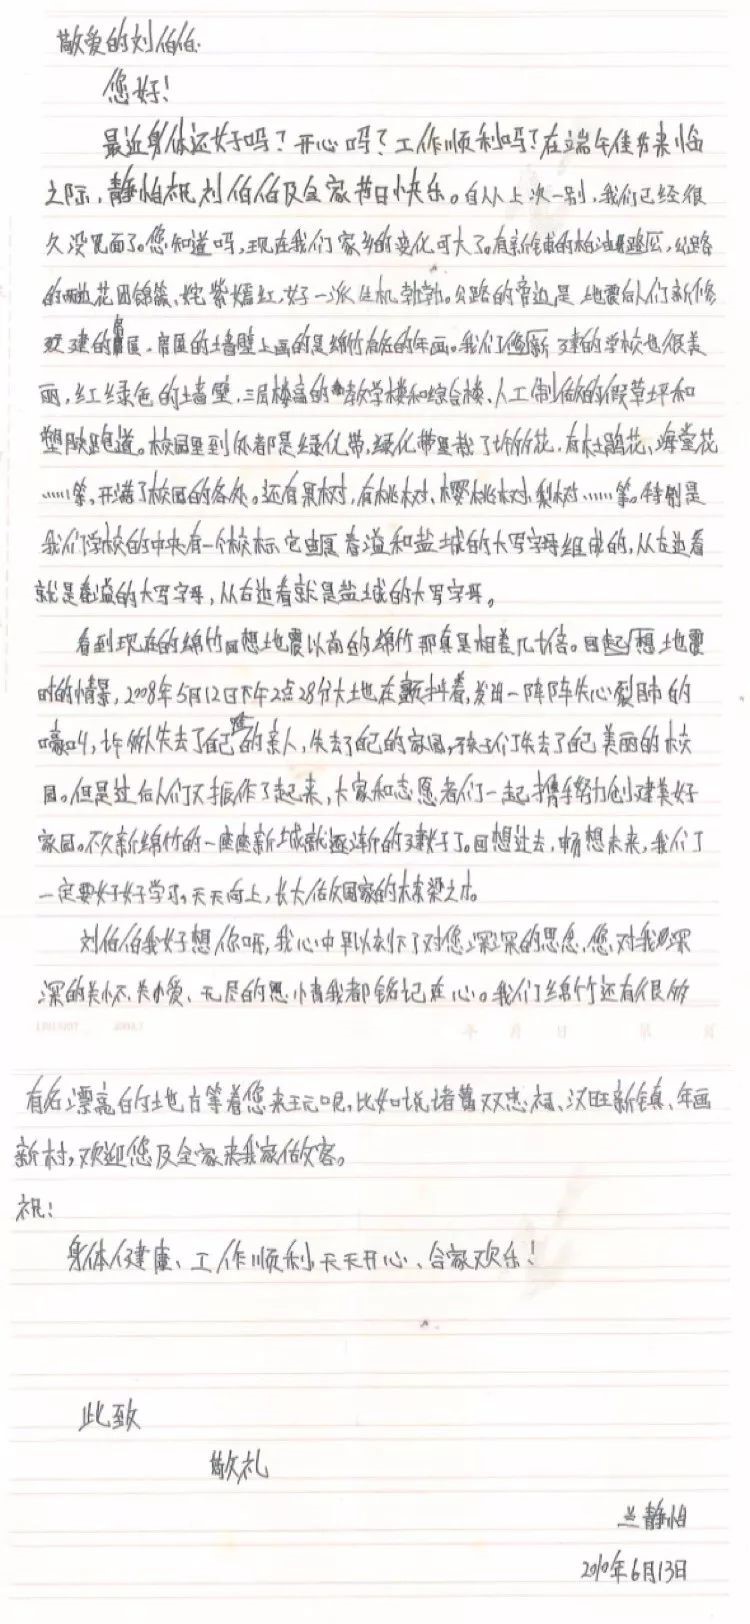 敬爱的刘伯伯：
您好！
最近身体还好吗？开心吗？工作顺利吗？在端午佳节来临
之际，静怡祝刘伯伯及全家节日快乐。自从上次一别，我们已经很
久没见面了。您知道吗，现在我们家乡的变化可大了。有新铺的柏油路，公路
的两边花团锦簇、姹紫嫣红，好一派生机勃勃。公路的旁边是地震后人们新修
建的房屋，房屋的墙壁上画的是绵竹的年画。我们新建的学校也很美
丽，红绿色的墙壁，三层楼高的教学楼和综合楼、人工制做的假草坪和
塑胶跑道。校园里到处都是绿化带，绿化带里栽了花，有杜鹃花、海棠花
……等，开满了校园的各处。还有果树，有桃树、樱桃树、梨树……等。特别是
我们学校的中央有一个校标，它是春溢和盐城的大写字母组成的，从左边看
就是春溢的大写字母，从右边看就是盐城的大写字母。
看到现在的绵竹回想地震以前的绵竹那真是相差几十倍。回想地震
时的情景，2008年5月12日下午2点28分大地在颤抖着，发出一阵阵失心裂肺的
嚎叫，许多人失去了自己的亲人，失去了自己的家园，孩子们失去了自己美丽的校
园。但是过后人们又振作了起来，大家和志愿者们一起携手努力创建美好
家园。不久新绵竹的一座座新城就逐渐的建好了。回想过去，想未来，我们
一定要好好学习，天天向上，长大做国家的栋梁之才。
刘伯伯我好想你呀，我心中早以刻下了对您深深的思念，您对我深
深的关怀、关爱、无尽的恩情我都铭记在心。我们绵竹还有很多
有名漂亮的地方等着您来玩呢，比如说诸葛双忠祠、汉旺新镇、年画
新村，欢迎您及全家来我家做客。
祝：
身体健康、工作顺利、天天开心、合家欢乐！
此致
敬礼
兰静怡
2010年6月13日